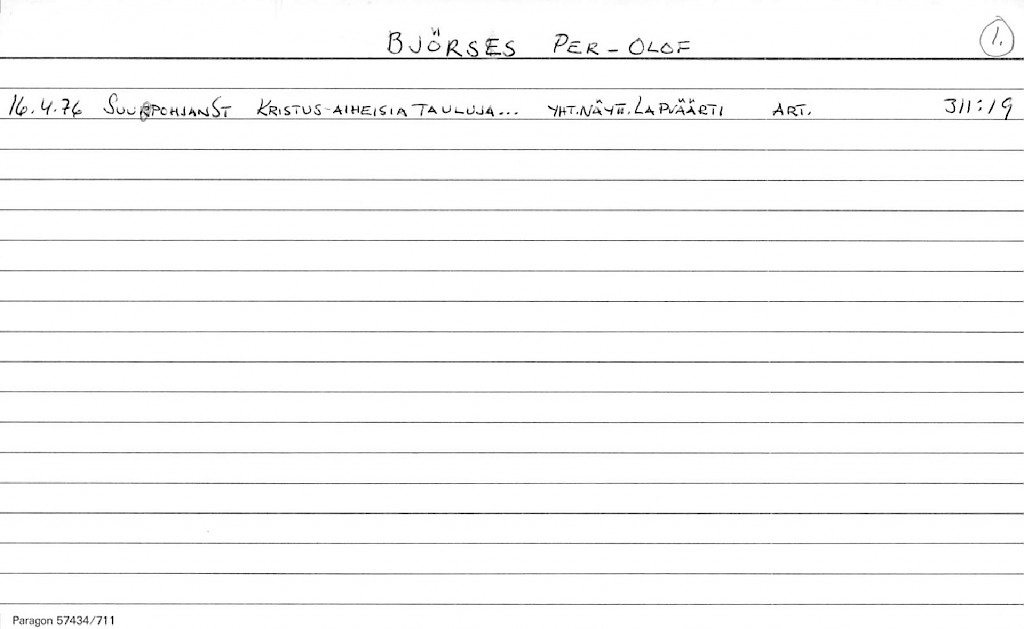 BJÖRSES PER-OLOF 1.
16.4.76 SUURPOHJANST KRISTUS-AIHEISIA TAULUJA... YHT.NÄYTT. LAPVÄÄRTI ART. 311:19
Paragon 57434/711